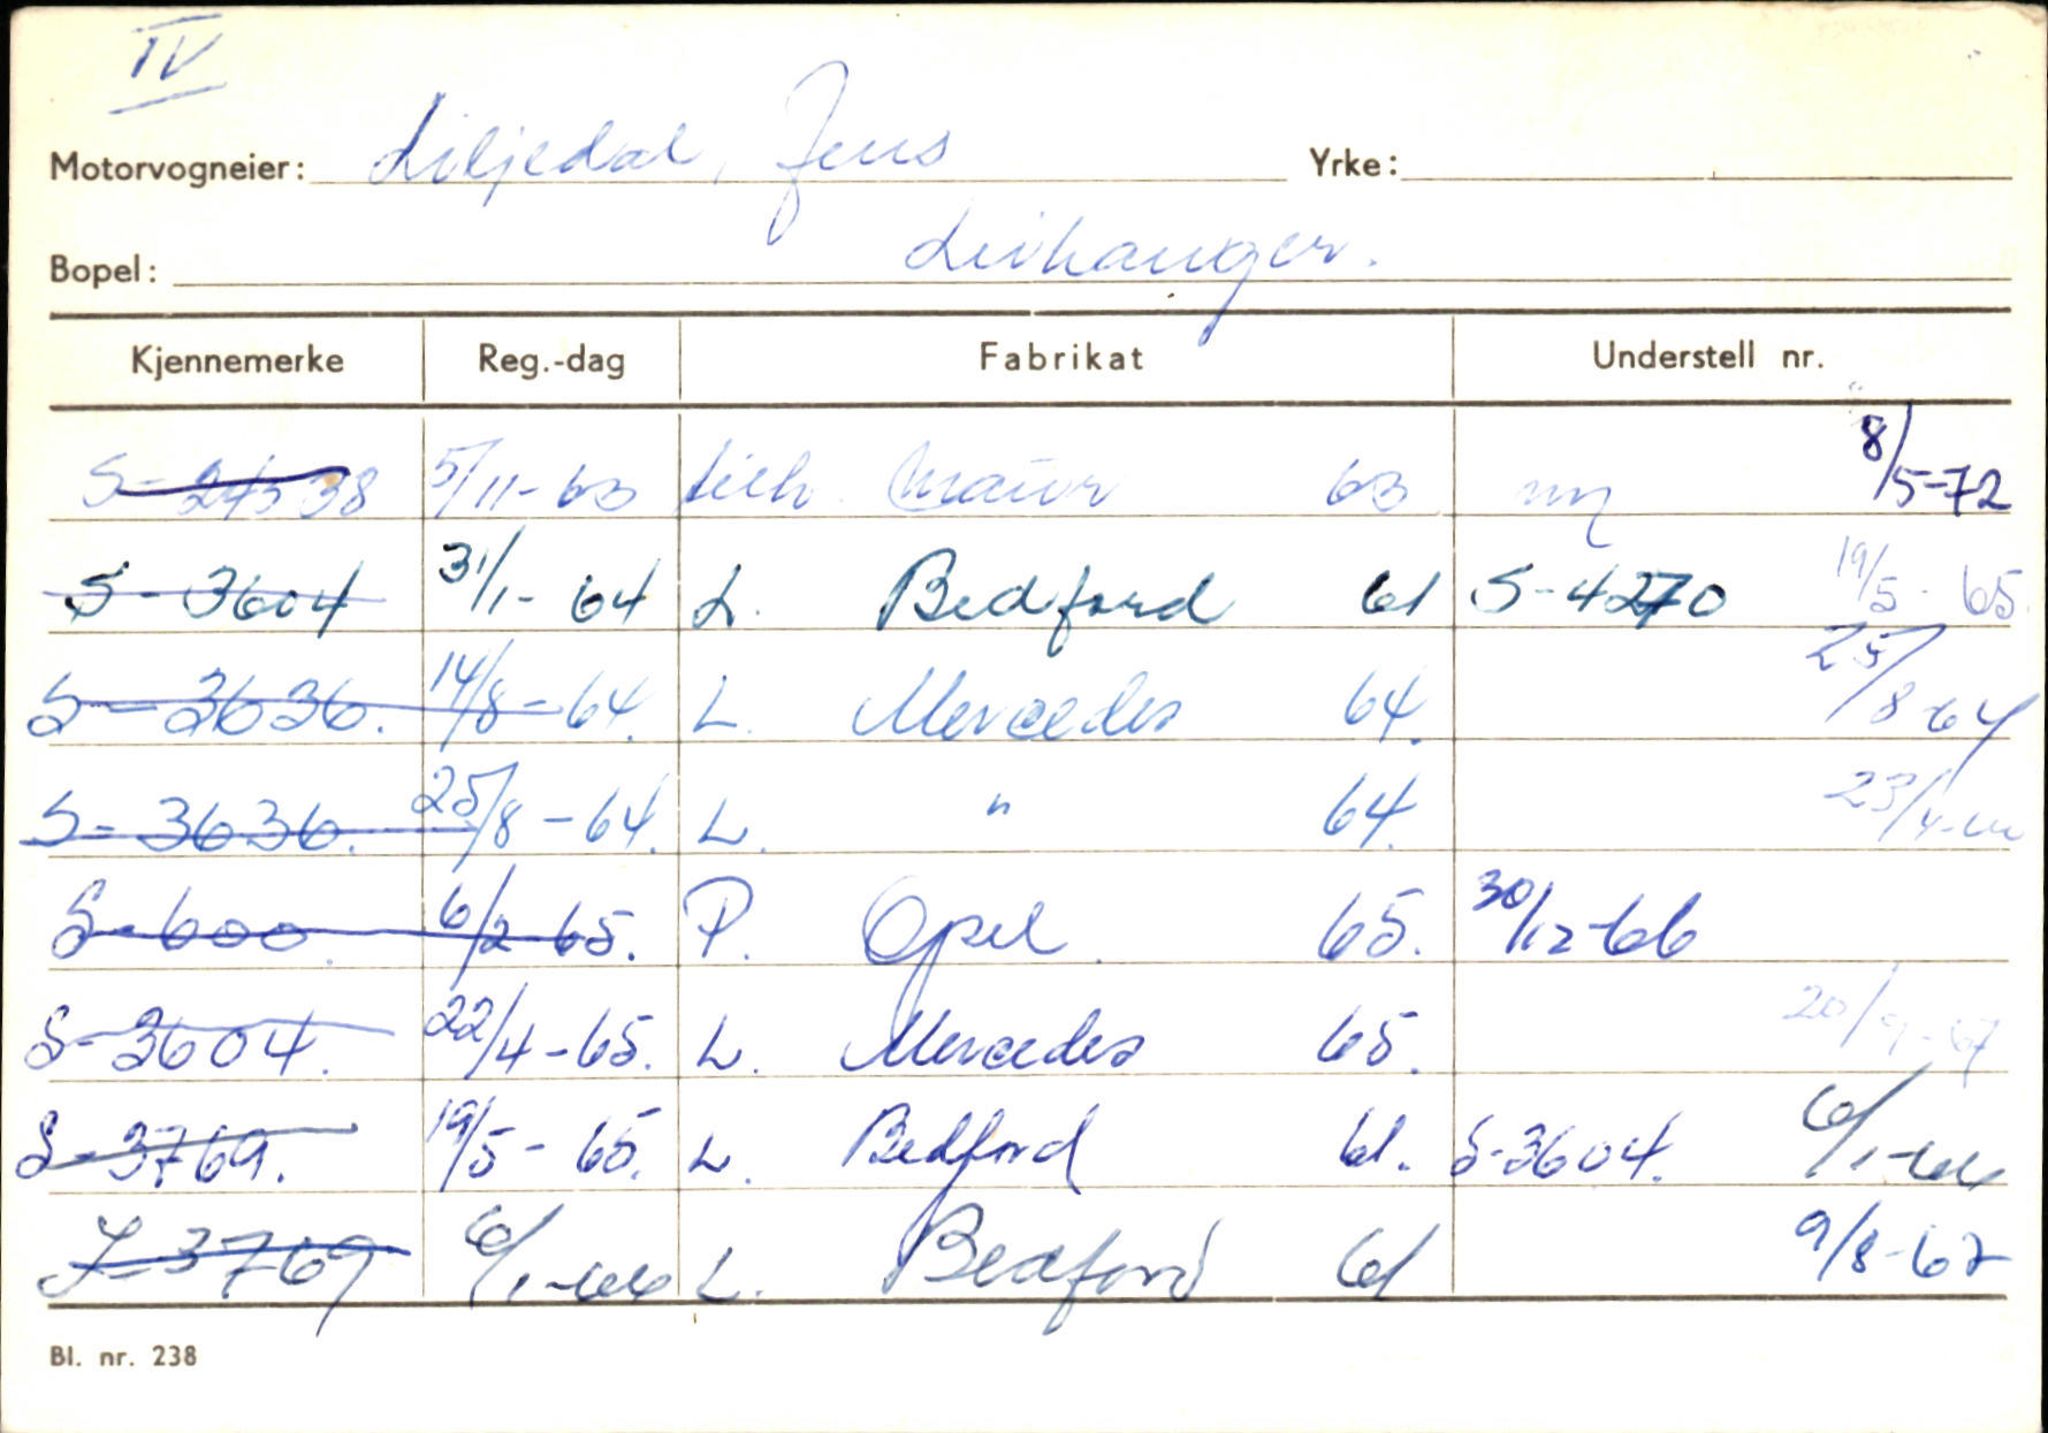 IV
Motorvogneier: Liljedal, Jens Yrke:
Bopel: Leikanger.
Kjennemerke Reg.-dag Fabrikat Understell nr.
S-24338 5/11-63 63 ny 8/5-72
S-3604 31/1-64 L. Bedford 61 S-4270 19/5-65
S-3636. 14/8-64. L. Mercedes 64. 25/8 64
S-3636. 25/8-64. L. " 64. 23/4-
S-600. 6/2 65. P. Opel. 65. 30/12-66
S-3604. 22/4-65. L. Mercedes 65. 20/9-67
S-3769. 19/5-65. L. Bedford 61. S-3604. 6/1-66
S-3769 6/1-66 L. Bedford 61 9/8-67
Bl. nr. 238